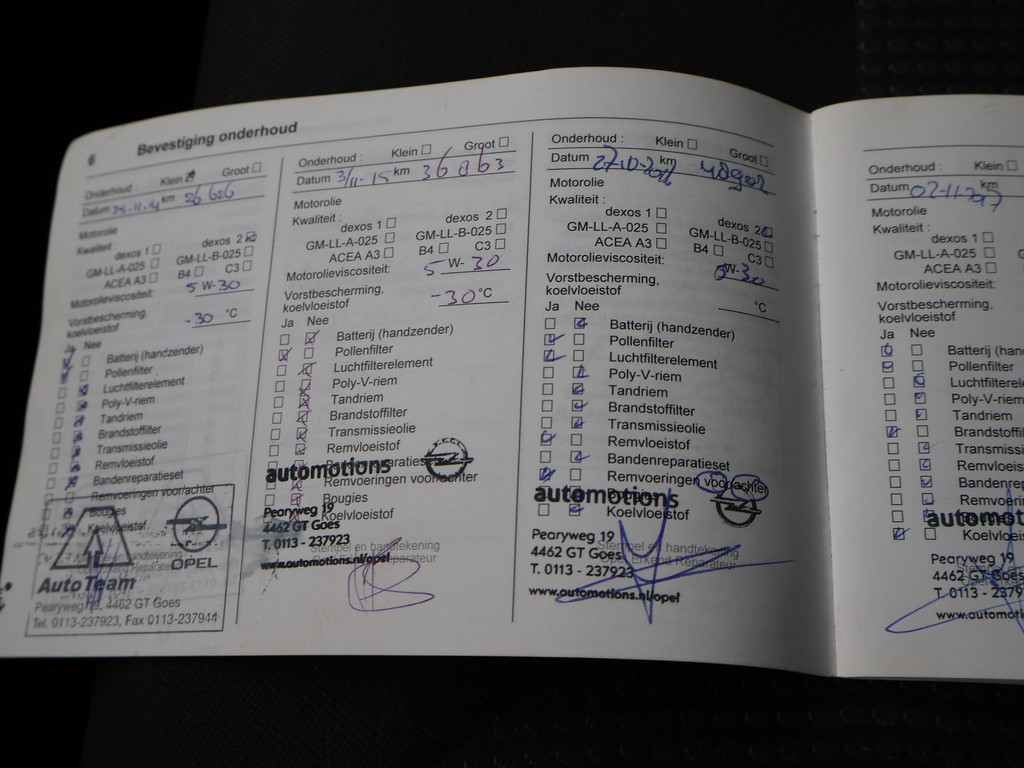 6 Bevestiging onderhoud
Onderhoud Klein Groot
Datum 25-11-14 km 26 626
Motorolie
Kwaliteit
dexos 1 dexos 2
GM-LL-A-025 GM-LL-B-025
ACEA A3 B4 C3
Motorolieviscositeit: 5 W-30
Vorstbescherming,
koelvloeistof -30 °C
Ja Nee
Batterij (handzender)
Pollenfilter
Luchtfilterelement
Poly-V-riem
Tandriem
Brandstoffilter
Transmissieolie
Remvloeistof
Bandenreparatieset
Remvoeringen voor/achter
Bougies
Koelvloeistof
Auto Team
OPEL
Pearyweg 19, 4462 GT Goes
Tel. 0113-237923, Fax 0113-237944
Onderhoud : Klein Groot
Datum 3/11-15 km 36863
Motorolie
Kwaliteit :
dexos 1 dexos 2
GM-LL-A-025 GM-LL-B-025
ACEA A3 B4 C3
Motorolieviscositeit: 5 W- 30
Vorstbescherming,
koelvloeistof -30 °C
Ja Nee
Batterij (handzender)
Pollenfilter
Luchtfilterelement
Poly-V-riem
Tandriem
Brandstoffilter
Transmissieolie
Remvloeistof
automotions
Remvoeringen voor/achter
Bougies
Koelvloeistof
Pearyweg 19
4462 GT Goes
T. 0113 - 237923
Stempel en handtekening
www.automotions.nl/opel
Onderhoud : Klein Groot
Datum 27-10-2016 km
Motorolie
Kwaliteit :
dexos 1 dexos 2
GM-LL-A-025 GM-LL-B-025
ACEA A3 B4 C3
Motorolieviscositeit: 5 W-30
Vorstbescherming,
koelvloeistof °C
Ja Nee
Batterij (handzender)
Pollenfilter
Luchtfilterelement
Poly-V-riem
Tandriem
Brandstoffilter
Transmissieolie
Remvloeistof
Bandenreparatieset
Remvoeringen voor/achter
automotions
Koelvloeistof
Pearyweg 19
4462 GT Goes
T. 0113 - 237923
Stempel en handtekening
Opel Erkend Reparateur
www.automotions.nl/opel
Onderhoud : Klein
Datum 02-11-2017 km
Motorolie
Kwaliteit :
dexos 1
GM-LL-A-025
ACEA A3
Motorolieviscositeit:
Vorstbescherming,
koelvloeistof
Ja Nee
Batterij (han
Pollenfilter
Luchtfilterel
Poly-V-riem
Tandriem
Brandstoffi
Transmissi
Remvloeis
Bandenrep
Remvoerin
automot
Koelvloeis
Pearyweg 19
4462 GT Goes
T. 0113 - 2379
www.automoti